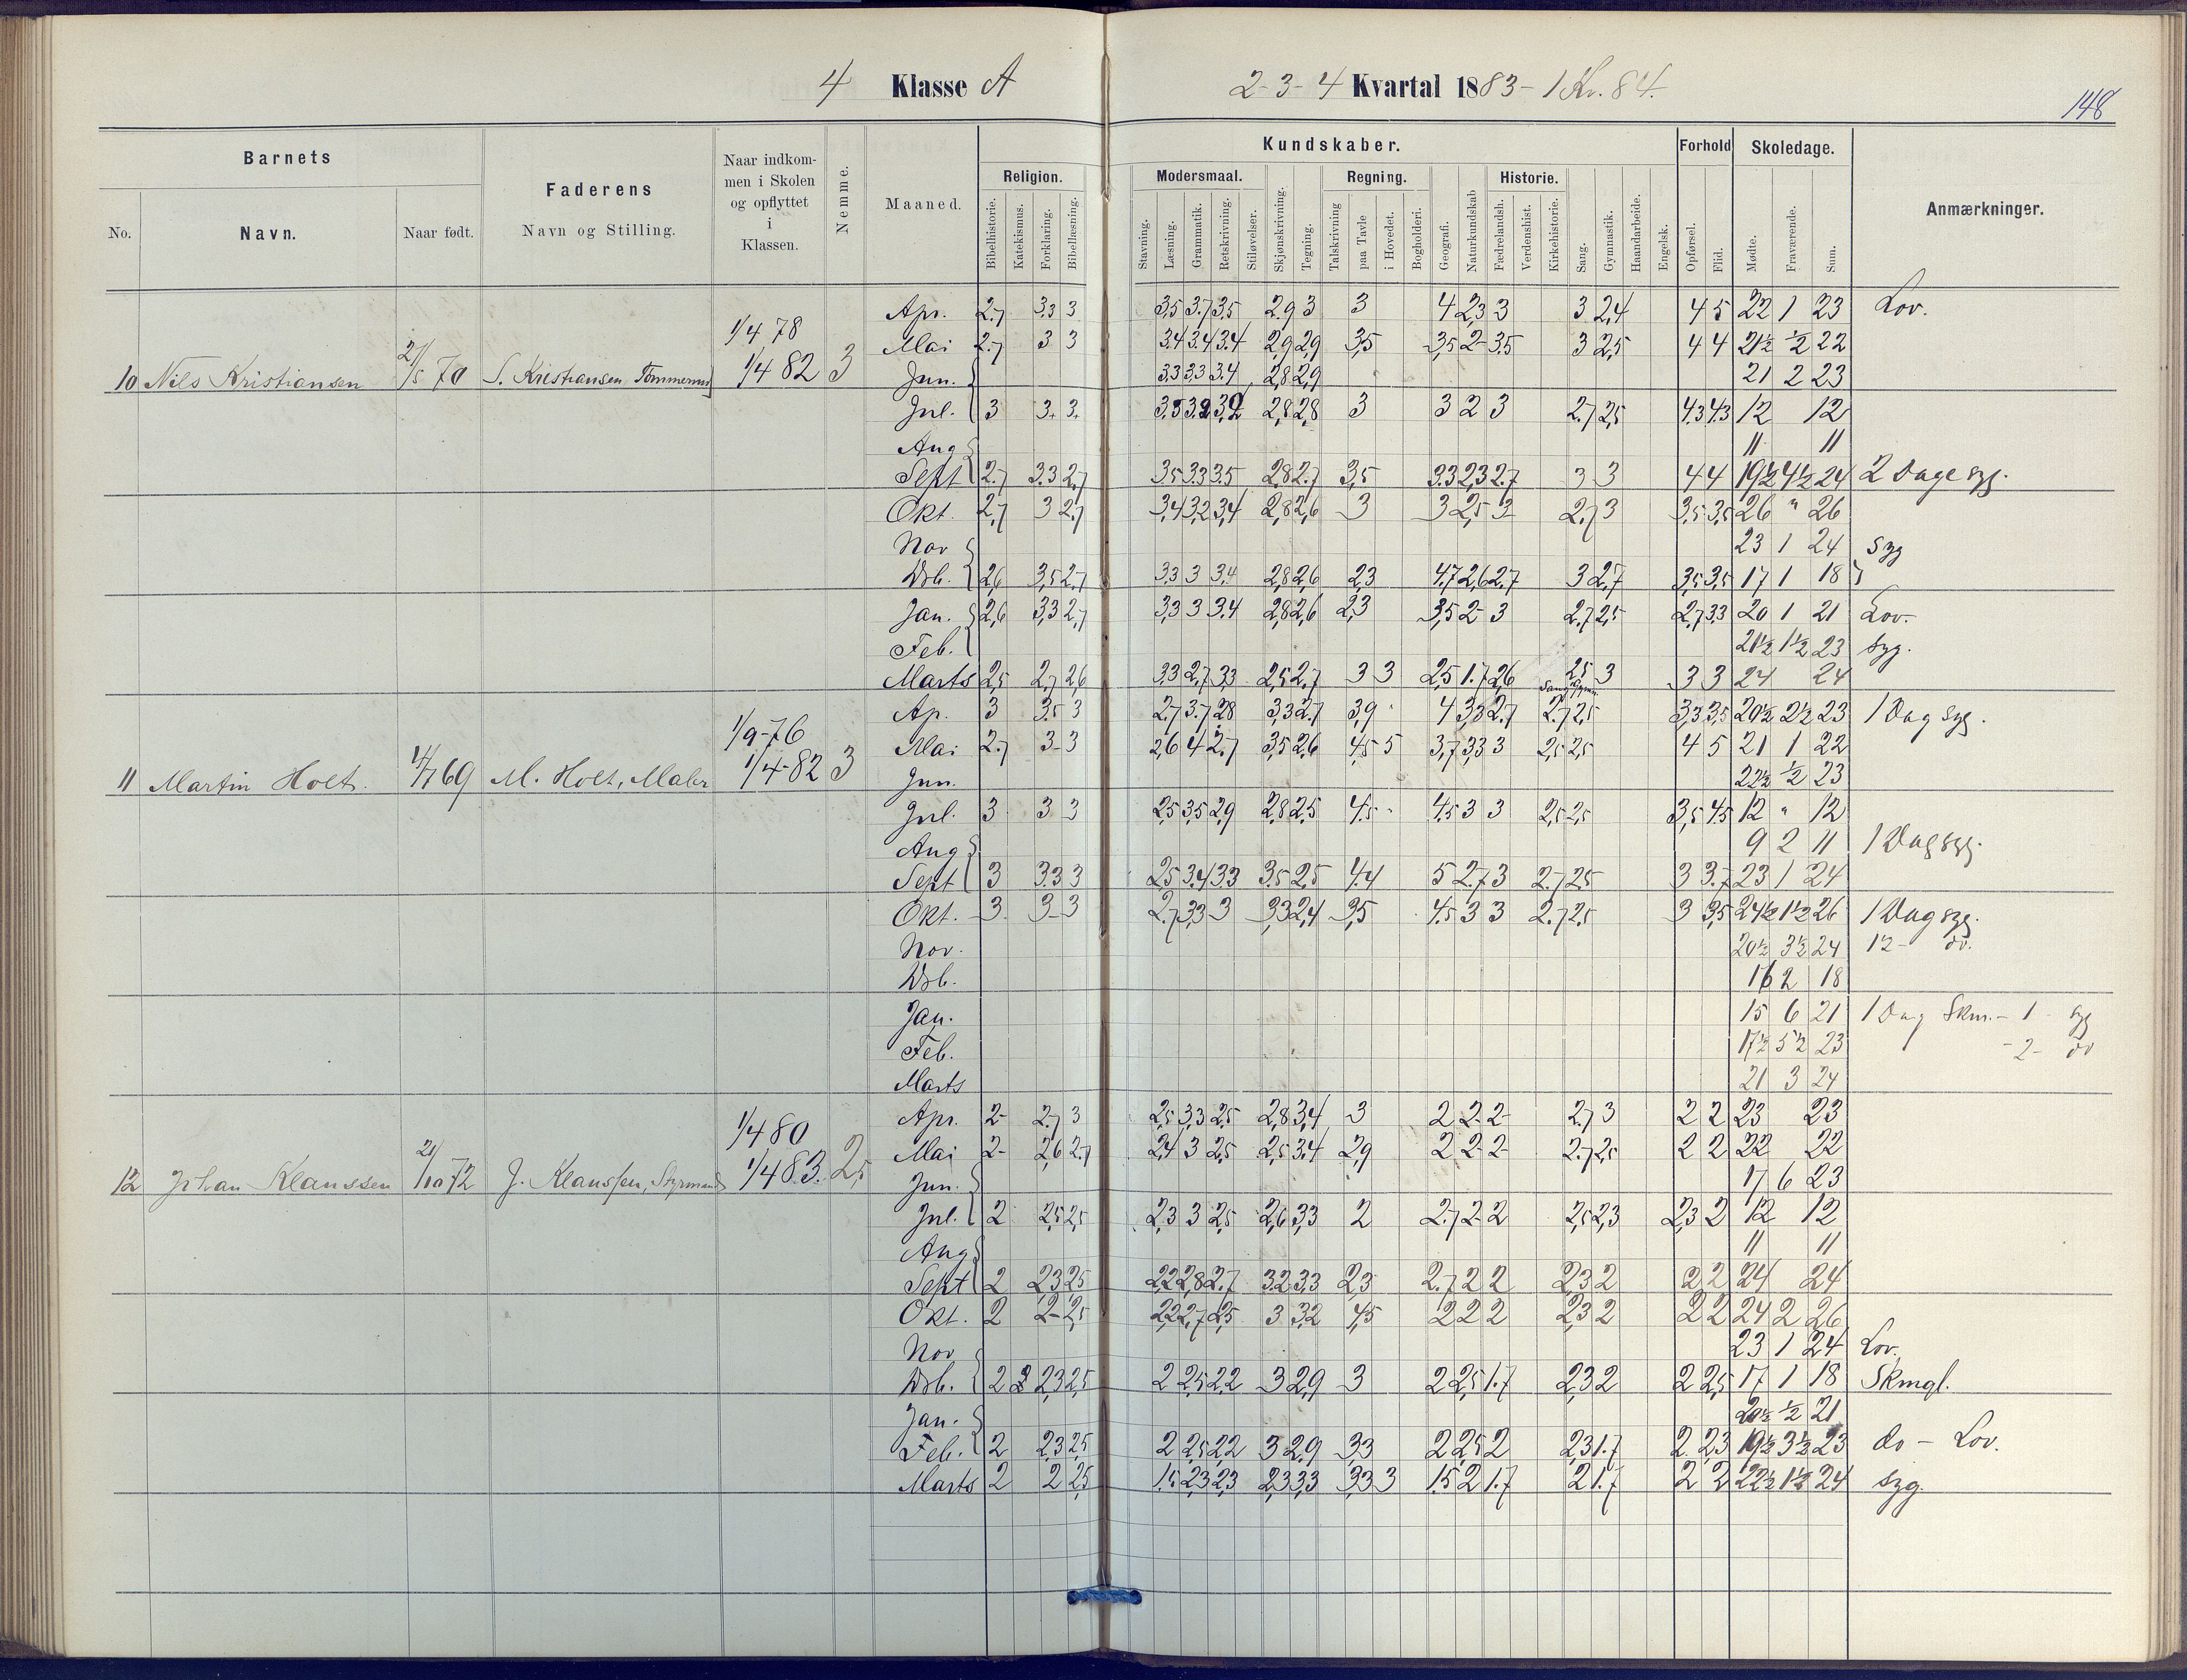 4 Klasse A 2-3-4 Kvartal 1883-1 Kv. 84.
148
Barnets Faderens Naar indkommen i Skolen og opflyttet i Klassen. Nemme. Maaned. Religion. Kundskaber. Forhold Skoledage. Anmærkninger.
Modersmaal. Regning. Historie.
No. Navn. Naar født. Navn og Stilling.
Bibelhistorie. Katekismus. Forklaring. Bibellæsning. Stavning. Læsning. Grammatik. Retskrivning. Stiløvelser. Skjønskrivning. Tegning. Talskrivning paa Tavle i Hovedet. Bogholderi. Geografi. Naturkundskab Fædrelandsh. Verdenshist. Kirkehistorie. Sang. Gymnastik. Haandarbeide. Engelsk. Opførsel. Flid. Mødte. Fraværende. Sum.
10 Nils Kristiansen 21/5 70 S. Kristiansen Tømmermd 1/4 78 1/4 82 3
Apr. 2.7 3.3 3 3,5 3.7 3,5 2.9 3 3 4 2,3 3 3 2,4 4 5 22 1 23 Lov.
Mai 2.7 3 3 3.4 3.4 3.4 2,9 2,9 3,5 3,5 2- 3.5 3 2,5 4 4 21½ ½ 22
Jun. 3.3 3.3 3.4 2,8 2,9 21 2 23
Jul. 3 3. 3. 3.5 3.2 3.2 2,8 2,8 3 3 2 3 2.7 2,5 4.3 4.3 12 12
Aug 11 11
Sept 2.7 3.3 2.7 3.5 3.3 3.5 2.8 2.7 3,5 3.3 2,3 2.7 3 3 4 4 19½ 4½ 24 2 Dage syg.
Okt. 2,7 3 2.7 3,4 3,2 3,4 2,8 2,6 3 3 2,5 3 2.7 3 3,5 3,5 26 " 26
Nov 23 1 24 Syg
Dsb. 2,6 3,5 2,7 3.3 3 3.4 2,8 2,6 2,3 4,7 2,6 2,7 3 2,7 3,5 3,5 17 1 18
Jan. 2,6 3,3 2,7 3.3 3 3.4 2,8 2,6 2,3 3,5 2- 3 2.7 2,5 2,7 3,3 20 1 21 Lov.
Feb. 21½ 1½ 23 Syg.
Marts 2,5 2,7 2,6 3,3 2,7 3,3 2,5 2,7 3 3 2,5 1.7 2,6 2,5 3 3 3 24 24
Sang Gymn.
11 Martin Holt. 14/7 69 M. Holt, Maler 1/9-76 1/4-82 3
Ap. 3 3.5 3 2.7 3.7 2.8 3,3 2.7 3,9 4 3,3 2.7 2.7 2,5 3,3 3,5 20½ 2½ 23 1 Dag syg.
Mai 2.7 3- 3 2,6 4 2.7 3,5 2,6 4,5 5 3,7 3,3 3 2,5 2,5 4 5 21 1 22
Jun. 22½ ½ 23
Jul. 3 3 3 2,5 3,5 2,9 2,8 2,5 4.5 4.5 3 3 2,5 2,5 3,5 4.5 12 " 12
Aug 9 2 11 1 Dag syg.
Sept 3 3.3 3 2.5 3.4 3.3 3.5 2.5 4.4 5 2.7 3 2.7 2.5 3 3.7 23 1 24
Okt. 3. 3 3 2.7 3,3 3 3,3 2,4 3,5 4.5 3 3 2.7 2,5 3 3,5 24½ 1½ 26 1 Dag syg.
Nov. 20½ 3½ 24 1½- do.
Dsb. 16 2 18
Jan. 15 6 21 1 Dag Skm.- 1 syg
Feb. 17½ 5½ 23 -2- do
Marts 21 3 24
12 Johan Klaussen 21/10 72 J. Klaussen, Styrmand 1/4 80 1/4 83. 2,5
Apr. 2- 2.7 3 2,5 3,3 2,5 2,8 3,4 3 2 2 2- 2.7 3 2 2 23 23
Mai 2- 2,6 2.7 2,4 3 2,5 2,5 3.4 2,9 2 2 2- 2.7 2,5 2 2 22 22
Jun. 17 6 23
Jul. 2 2,5 2,5 2,3 3 2,5 2,6 3,3 2 2.7 2 2 2,5 2,3 2,3 2 12 12
Aug 11 11
Sept 2 2,3 2,5 2,2 2,8 2.7 3.2 3,3 2,3 2.7 2 2 2,3 2 2 2 24 24
Okt. 2 2- 2,5 2,2 2,7 2,5 3 3,2 4,5 2 2 2 2,3 2 2 2 24 2 26
Nov 23 1 24 Lov.
Dsb. 2 2 2,3 2,5 2 2,5 2,2 3 2,9 3 2 2,5 1.7 2,3 2 2 2,5 17 1 18 Skmgl.
Jan. 20½ ½ 21
Feb. 2 2,3 2,5 2 2,5 2,2 3 2,9 3,3 2 2,5 2 2,3 1.7 2 2,3 19½ 3½ 23 do - Lov.
Marts 2 2 2,5 1,5 2,3 2,3 2,3 3,3 3,3 3 1.5 2 1.7 2 1.7 2 2 22½ 1½ 24 Syg.